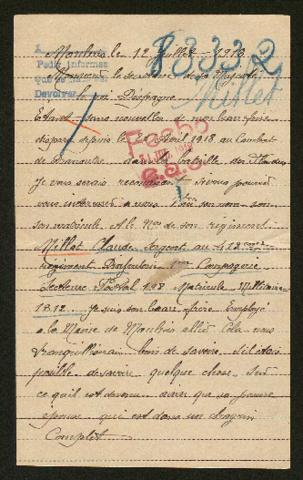 Pedir informes
Devolver
83332
Millet
Moulins le 12 Juillet 1918
Monsieur le secretaire de sa Majesté
le roi Despagne
Etant sans nouvelles de mon beau frère
disparu depuis le 25 Avril 1918 au Combat
de bataille des Flandres
Je vous serais reconnaissant si vous pouvez
vous interesser a nous son nom
son matricule & le No de son regiment
Millet Claude Sergent au 412 eme
regiment Dinfanterie Compagnie
Secteur Postal 198 Matricule Militaire
1812 Je suis son beau frère Employé
a la Mairie de Moulins allié Cela nous
tranquilliserait bien de savoir s'il était
possible de savoir quelque chose sur
ce quil est devenu ainsi que sa pauvre
épouse qui est dans un chagrin
Complet